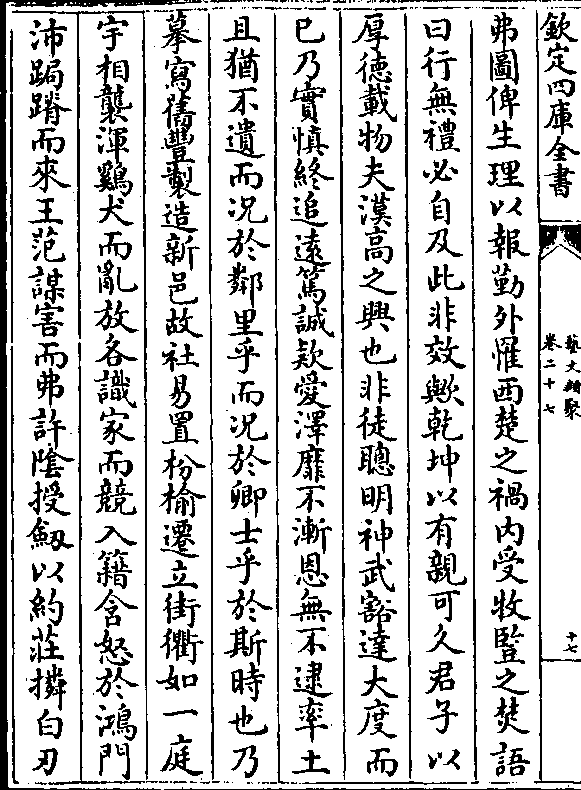 欽定四庫全書
藝文類聚
卷二十七
十七
弗圖俾生理以報勤外罹西楚之禍内受牧豎之焚語
曰行無禮必自及此非效歟乾坤以有親可久君子以
厚徳載物夫漢高之興也非徒聰明神武豁達大度而
巳乃實慎終追逺篤誠欵愛澤靡不漸恩無不逮率土
且猶不遺而况於鄰里乎而况於卿士乎於斯時也乃
摹寫舊豐製造新邑故社易置枌榆遷立街衢如一庭
宇相襲渾鷄犬而亂放各識家而競入籍含怒於鴻門
沛跼蹐而來王范謀害而弗許陰授劒以約莊撛白刃